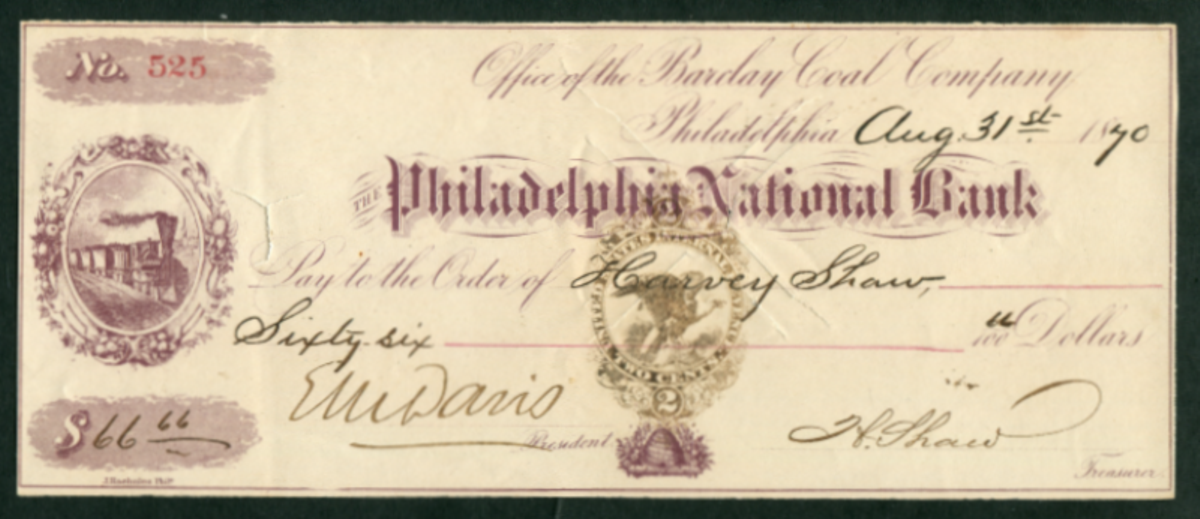 No. 525
Office of the Barclay Coal Company
Philadelphia Aug. 31st. 1870
THE Philadelphia National Bank
Pay to the Order of Harvey Shaw,
Sixty six 66/100 Dollars
UNITED STATES INTERNAL REVENUE
TWO CENTS
2
$66 66
E M Davis
President
H. Shaw
Treasurer